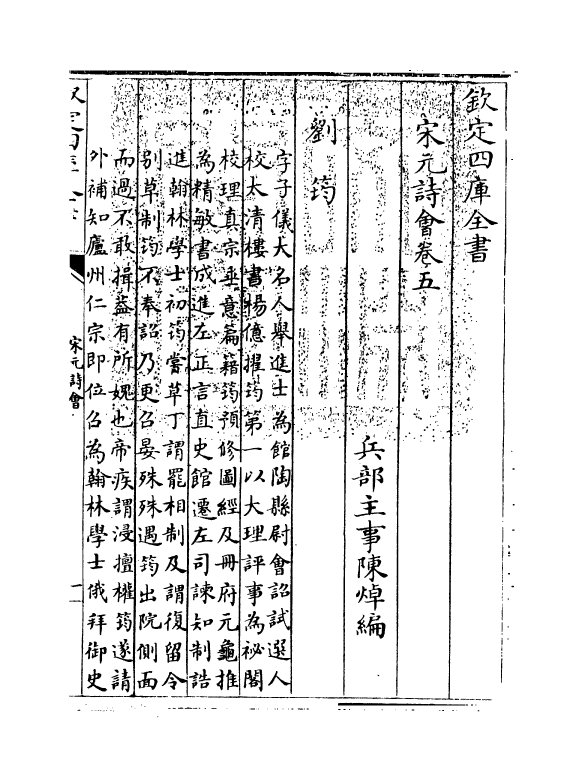 欽定四庫全書
宋元詩會卷五
兵部主事陳焯編
劉筠
字子儀大名人舉進士為館陶縣尉會詔試選人
校太清樓書楊億擢筠第一以大理評事為祕閣
校理真宗垂意篇籍筠預修圖經及冊府元龜推
為精敏書成進左正言直史館遷左司諫知制誥
進翰林學士初筠嘗草丁謂罷相制及謂復留令
别草制筠不奉詔乃更召晏殊殊遇筠出院側面
而過不敢揖葢有所媿也帝疾謂浸擅權筠遂請
外補知廬州仁宗即位召為翰林學士俄拜御史
宋元詩會
一